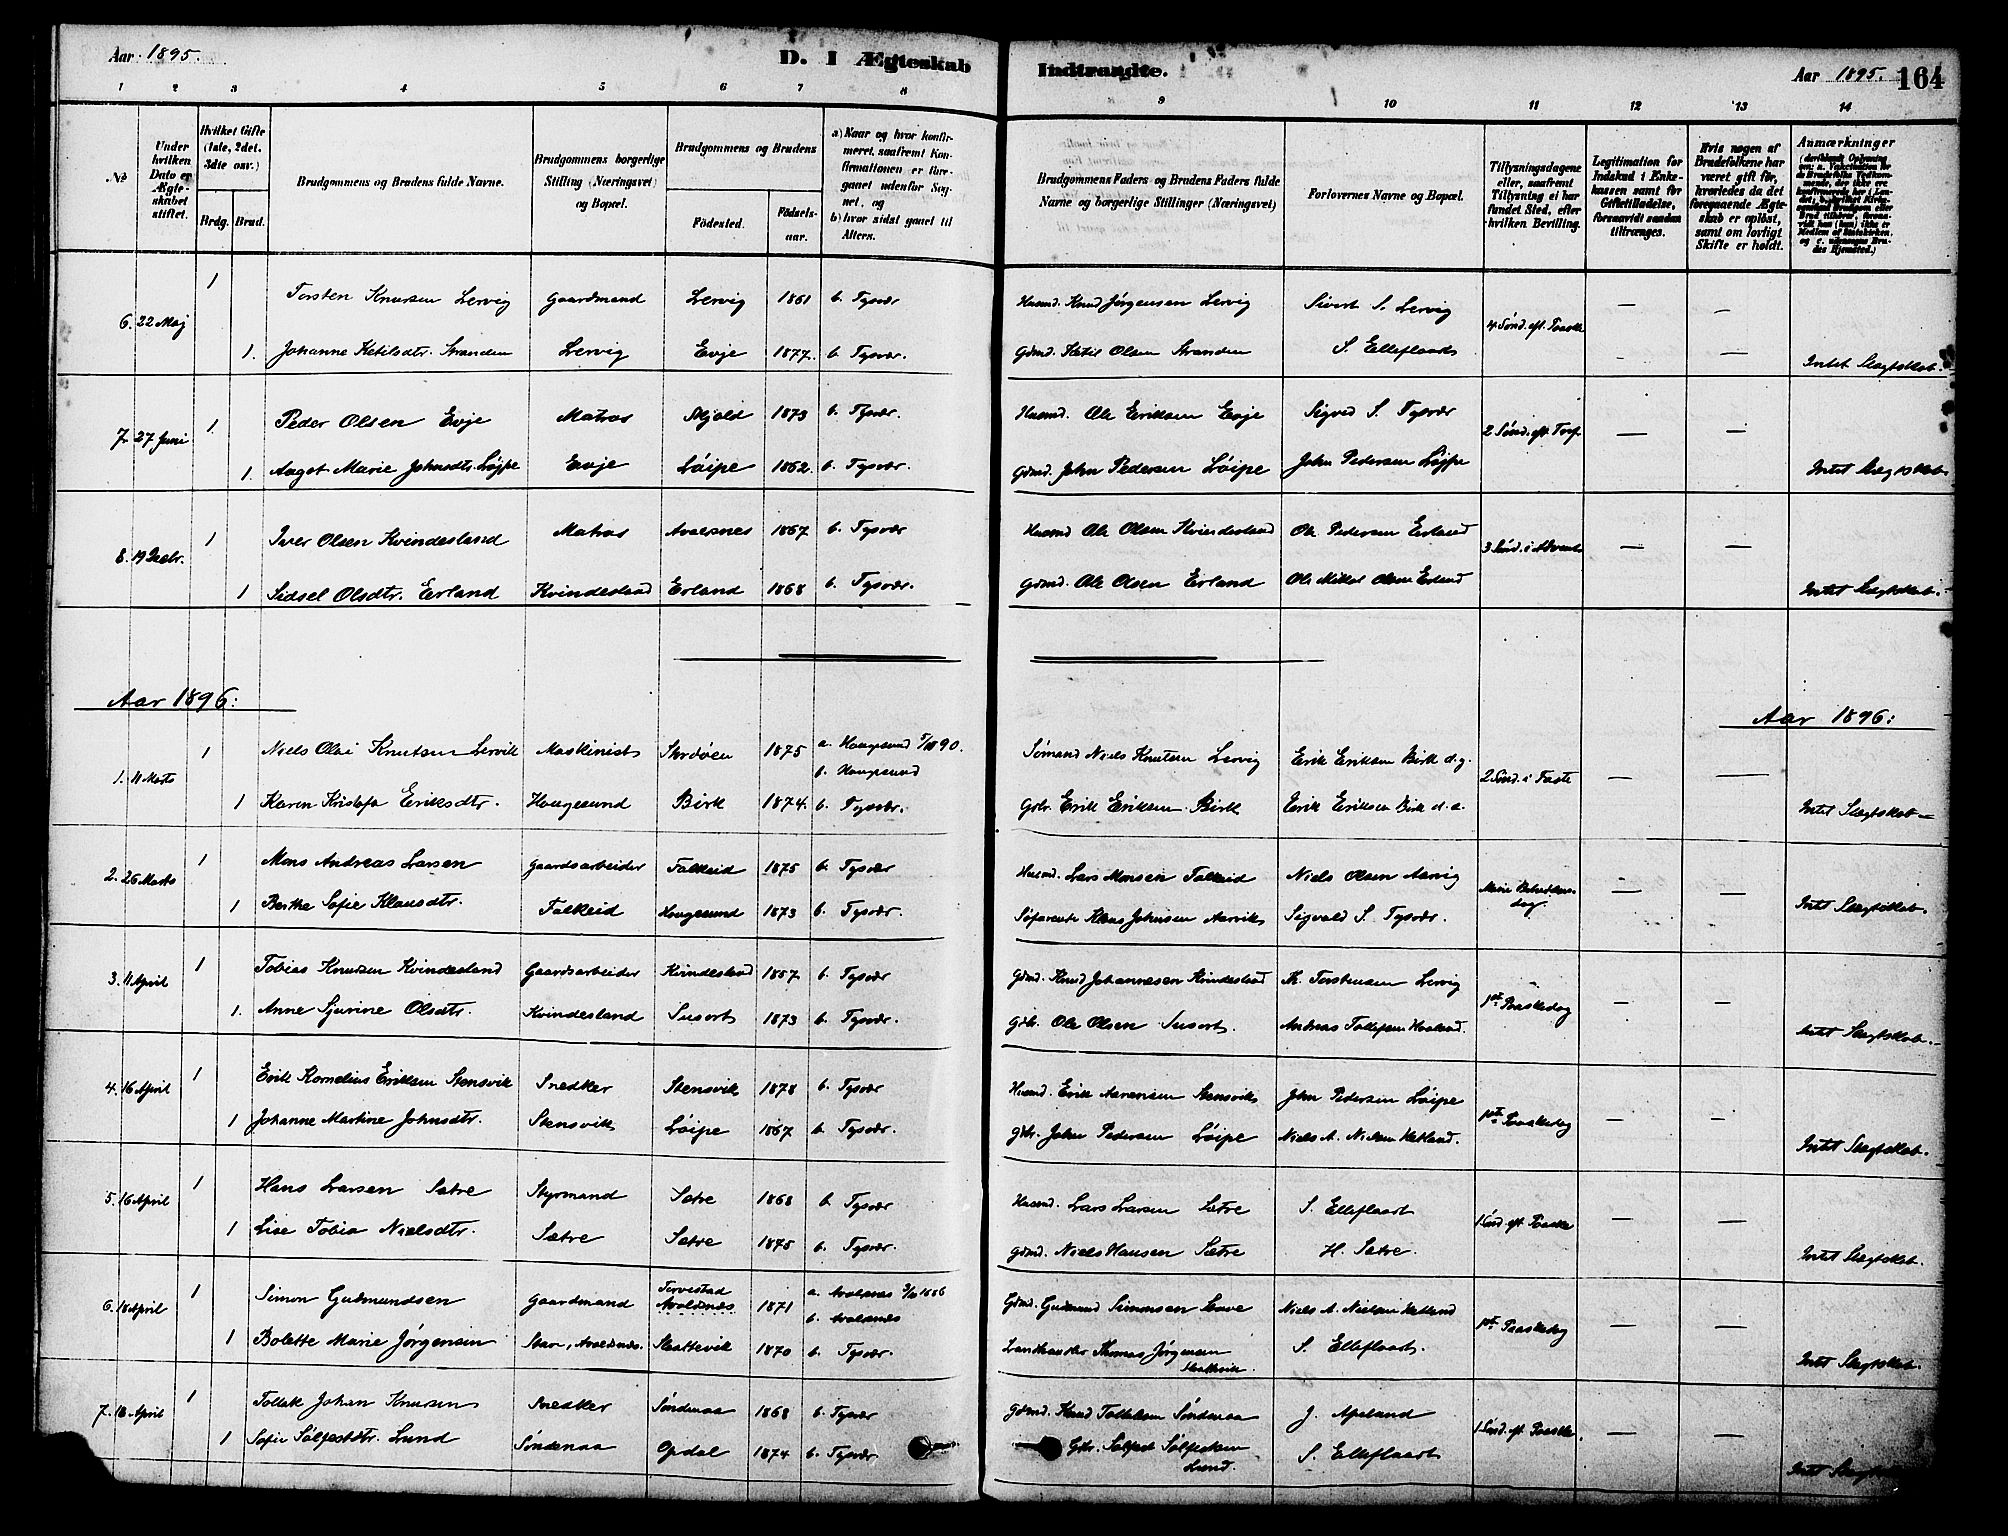 Aar 1895.
D. I Ægteskab Indtraadte.
Aar 1895. 164
1 2 3 4 5 6 7 8 9 10 11 12 13 14
No
Under hvilken Dato er Ægteskabet stiftet.
Hvilket Gifte (1ste, 2det, 3die osv.)
Brdg. Brud.
Brudgommens og Brudens fulde Navne.
Brudgommens borgerlige Stilling (Næringsvei) og Bopæl.
Brudgommens og Brudens
Födested. Födselsaar.
a) Naar og hvor konfirmeret, saafremt Konfirmationen er foregaaet udenfor Sognet, og
b) hvor sidst gaaet til Alters.
Brudgommens Faders og Brudens Faders fulde Navne og borgerlige Stillinger (Næringsvei)
Forlovernes Navne og Bopæl.
Tillysningsdagene eller, saafremt Tillysning ei har fundet Sted, efter hvilken Bevilling.
Legitimation for Indskud i Enkekassen samt for Giftetilladelse, forsaavidt saadan tiltrænges.
Hvis nogen af Brudefolkene har været gift før, hvorledes da det foregaaende Ægteskab er opløst, samt om lovligt Skifte er holdt.
Anmærkninger
6. 22 Maj 1 Torsten Knutsen Lervig Gaardmand Lervig 1861 b. Tysvær Husmd. Knud Jørgensen Lervig Sivert S. Lervig 4 Sønd. eft. Paaske — —
1. Johanne Ketilsdtr. Stranden Lervig Evje 1877. b. Tysvær. Gdmd. Ketil Olsen Stranden S. Elleflaadt — — Intet Slægtskab.
7. 27 Juni 1. Peder Olsen Evje Matros Skjold 1873 b. Tysvær. Husmd. Ole Eriksen Evje Sigved S. Tysvær 2 Sønd. eft. Tref. — —
1. Aagot Marie Johnsdtr. Løjpe Evje Løipe 1862. b. Tysvær. Gdmd. John Pedersen Løipe John Pedersen Løjpe Intet Slægtskab.
8. 19 Decbr. 1 Iver Olsen Kvindesland Matros Avaldsnes 1867 b. Tysvær Husmd Ole Olsen Kvindesland Ole Pedersen Erland 3 Sønd. i Advent — —
1 Sidsel Olsdtr. Erland Kvindesland Erland 1868 b. Tysvær. Gdmd. Ole Olsen Erland Ole Mikkel Olsen Erland Intet Slægtskab.
Aar 1896:
Aar 1896:
1. 11 Marts 1 Niels Olai Knutsen Lervik Maskinist 1875 a. Haugesund 90. b. Haugesund Sømand Niels Knutsen Lervig Erik Eriksen Birk d.y. 2 Sønd. i Faste — —
1 Karen Kristofa Eriksdtr. Haugesund Birk 1874. b. Tysvær. Gbr. Erik Eriksen Birk Erik Eriksen Birk d.æ. Intet Slægtskab
2. 26 Marts 1 Mons Andreas Larsen Gaardsarbeider Falkeid 1875 b. Tysvær Husmd. Lars Monsen Falkeid Niels Olsen Aarvig Marie Bebudelsesdag — —
1 Berthe Sofie Klausdtr. Falkeid Haugesund 1873 b. Tysvær. Søfarende Klaus Johnsen Aarvik Sigvald S. Tysvær. Intet Slægtskab.
3. 11 April 1 Tobias Knutsen Kvindesland Gaardsarbeider Kvindesland 1857 b. Tysvær Gdmd. Knud Johannesen Kvindesland K. Torstensen Lervig 1ste Paaskedag — —
1. Anne Sjurine Olsdtr. Kvindesland Susort 1873 b. Tysvær. Gbr. Ole Olsen Susort. Andreas Tollefsen Haaland. Intet Slægtskab.
4. 16 April 1 Erik Kornelius Eriksen Stensvik Snedker Stensvik 1878 b. Tysvær Husmd. Erik Aarensen Stensvik John Pedersen Løipe 1ste Paaskedag — —
1 Johanne Martine Johnsdtr. Stensvik Løipe 1867 b. Tysvær. Gbr. John Pedersen Løipe Niels A. Nielsen Hetland. Intet Slægtskab.
5. 16 April 1 Hans Larsen Sætre Styrmand Sætre 1868 b. Tysvær. Husmd. Lars Larsen Sætre S. Elleflaadt 1 Sønd. eft. Paaske — —
1 Lise Tobia Nielsdtr. Sætre Sætre 1875 b. Tysvær. Gdmd. Niels Hansen Sætre H. Sætre. Intet Slægtskab.
6. 18 April 1 Simon Gudmundsen Gaardmand Avaldsnes 1871 a. Avalsnæs 1886 b. Avalsnæs Gdmd. Gudmund Simonsen Niels A. Nielsen Hetland 1ste Paaskedag — —
1 Bolette Marie Jørgensen Avaldsnes. Slattevik 1870 b. Tysvær. Landhandler Thomas Jørgensen Slattevik S. Elleflaadt. Intet Slægtskab.
7. 18 April 1 Tollak Johan Knutsen Snedker Søndenaa 1868 b. Tysvær Gdmd. Knud Søndenaa J. Apeland 1 Sønd. eft. Paaske. — —
1 Sofie Salfestdtr. Lund Søndenaa Opdal 1874 b. Tysvær Gbr. Salfest Salfestsen Lund. S. Elleflaadt Intet